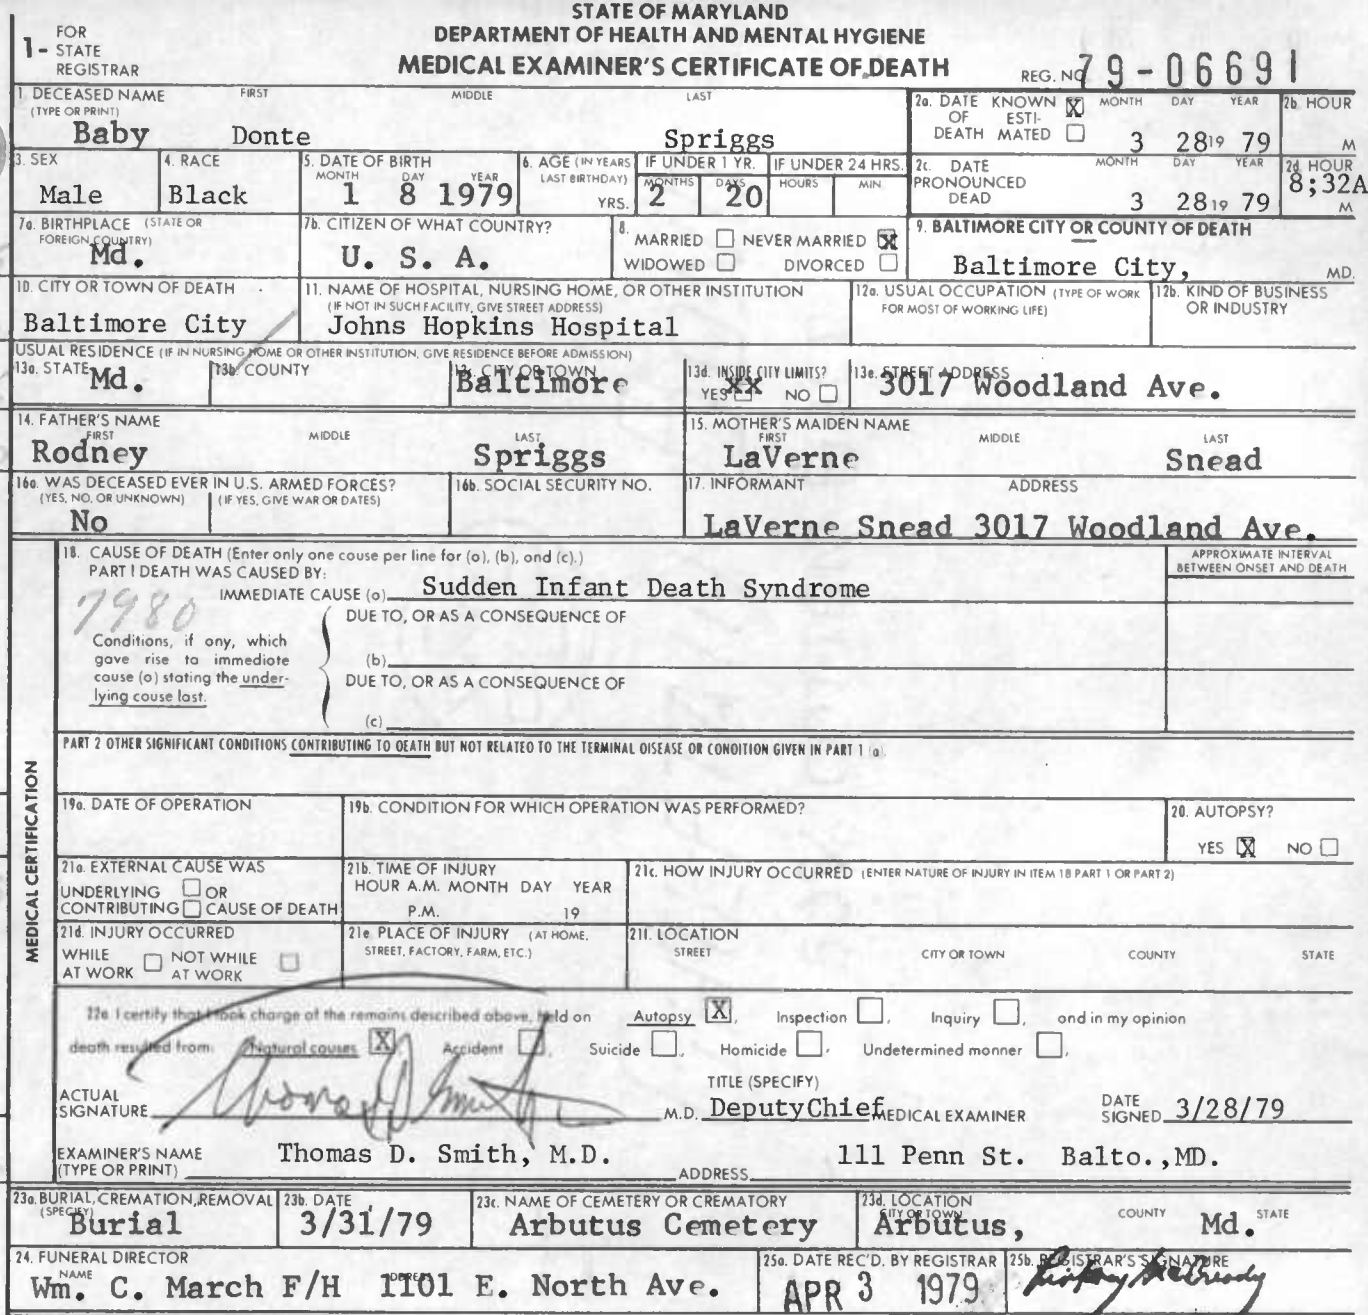 STATE OF MARYLAND
DEPARTMENT OF HEALTH AND MENTAL HYGIENE
MEDICAL EXAMINER'S CERTIFICATE OF DEATH
1- FOR STATE REGISTRAR
REG. NO 79-06691
1. DECEASED NAME (TYPE OR PRINT) FIRST MIDDLE LAST
Baby Donte Spriggs
2a. DATE OF DEATH KNOWN X ESTIMATED MONTH DAY YEAR 2b. HOUR
3 28 19 79 M
3. SEX 4. RACE 5. DATE OF BIRTH MONTH DAY YEAR 6. AGE (IN YEARS LAST BIRTHDAY) YRS. IF UNDER 1 YR. MONTHS DAYS IF UNDER 24 HRS. HOURS MIN.
Male Black 1 8 1979 2 20
2c. DATE PRONOUNCED DEAD MONTH DAY YEAR 2d. HOUR
3 28 19 79 8;32A M
7a. BIRTHPLACE (STATE OR FOREIGN COUNTRY) 7b. CITIZEN OF WHAT COUNTRY?
Md. U. S. A.
8. MARRIED NEVER MARRIED X
WIDOWED DIVORCED
9. BALTIMORE CITY OR COUNTY OF DEATH
Baltimore City, MD.
10. CITY OR TOWN OF DEATH
Baltimore City
11. NAME OF HOSPITAL, NURSING HOME, OR OTHER INSTITUTION
(IF NOT IN SUCH FACILITY, GIVE STREET ADDRESS)
Johns Hopkins Hospital
12a. USUAL OCCUPATION (TYPE OF WORK FOR MOST OF WORKING LIFE) 12b. KIND OF BUSINESS OR INDUSTRY
USUAL RESIDENCE (IF IN NURSING HOME OR OTHER INSTITUTION, GIVE RESIDENCE BEFORE ADMISSION)
13a. STATE 13b. COUNTY 13c. CITY OR TOWN 13d. INSIDE CITY LIMITS? 13e. STREET ADDRESS
Md. Baltimore YES XX NO 3017 Woodland Ave.
14. FATHER'S NAME FIRST MIDDLE LAST
Rodney Spriggs
15. MOTHER'S MAIDEN NAME FIRST MIDDLE LAST
LaVerne Snead
16a. WAS DECEASED EVER IN U.S. ARMED FORCES? (YES, NO, OR UNKNOWN) (IF YES, GIVE WAR OR DATES) 16b. SOCIAL SECURITY NO.
No
17. INFORMANT ADDRESS
LaVerne Snead 3017 Woodland Ave.
MEDICAL CERTIFICATION
18. CAUSE OF DEATH (Enter only one cause per line for (a), (b), and (c).)
APPROXIMATE INTERVAL BETWEEN ONSET AND DEATH
PART I DEATH WAS CAUSED BY:
IMMEDIATE CAUSE (a) Sudden Infant Death Syndrome
7980
DUE TO, OR AS A CONSEQUENCE OF
Conditions, if any, which gave rise to immediate cause (a) stating the underlying cause last.
(b)
DUE TO, OR AS A CONSEQUENCE OF
(c)
PART 2 OTHER SIGNIFICANT CONDITIONS CONTRIBUTING TO DEATH BUT NOT RELATED TO THE TERMINAL DISEASE OR CONDITION GIVEN IN PART 1 (a)
19a. DATE OF OPERATION 19b. CONDITION FOR WHICH OPERATION WAS PERFORMED? 20. AUTOPSY?
YES X NO
21a. EXTERNAL CAUSE WAS
UNDERLYING OR
CONTRIBUTING CAUSE OF DEATH
21b. TIME OF INJURY
HOUR A.M. MONTH DAY YEAR
P.M. 19
21c. HOW INJURY OCCURRED (ENTER NATURE OF INJURY IN ITEM 18 PART 1 OR PART 2)
21d. INJURY OCCURRED
WHILE AT WORK NOT WHILE AT WORK
21e. PLACE OF INJURY (AT HOME, STREET, FACTORY, FARM, ETC.)
21f. LOCATION
STREET CITY OR TOWN COUNTY STATE
22a. I certify that I took charge of the remains described above, held on Autopsy X, Inspection , Inquiry , and in my opinion
death resulted from: Natural causes X Accident , Suicide , Homicide , Undetermined manner ,
ACTUAL SIGNATURE Thomas D. Smith M.D. TITLE (SPECIFY) Deputy Chief MEDICAL EXAMINER DATE SIGNED 3/28/79
EXAMINER'S NAME (TYPE OR PRINT) Thomas D. Smith, M.D. ADDRESS 111 Penn St. Balto.,MD.
23a. BURIAL, CREMATION, REMOVAL (SPECIFY) 23b. DATE 23c. NAME OF CEMETERY OR CREMATORY 23d. LOCATION CITY OR TOWN COUNTY STATE
Burial 3/31/79 Arbutus Cemetery Arbutus, Md.
24. FUNERAL DIRECTOR
NAME ADDRESS
Wm. C. March F/H 1101 E. North Ave.
25a. DATE REC'D. BY REGISTRAR 25b. REGISTRAR'S SIGNATURE
APR 3 1979